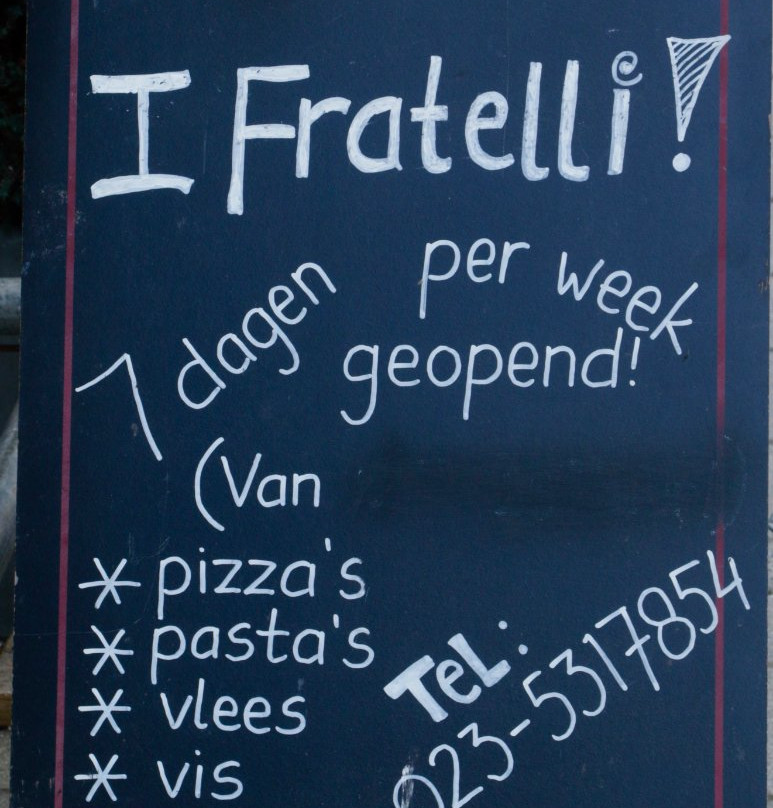 I Fratelli!
7 dagen per week
geopend!
(Van
* pizza's
* pasta's
* vlees
* vis
TeL:
023-5317854